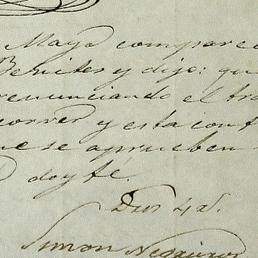 Mayo comparec
Benites y dijo: qu
renunciando el tra
correr y esta conf
ue se aprueben
doy fé.
Dur 4 d.
Simon